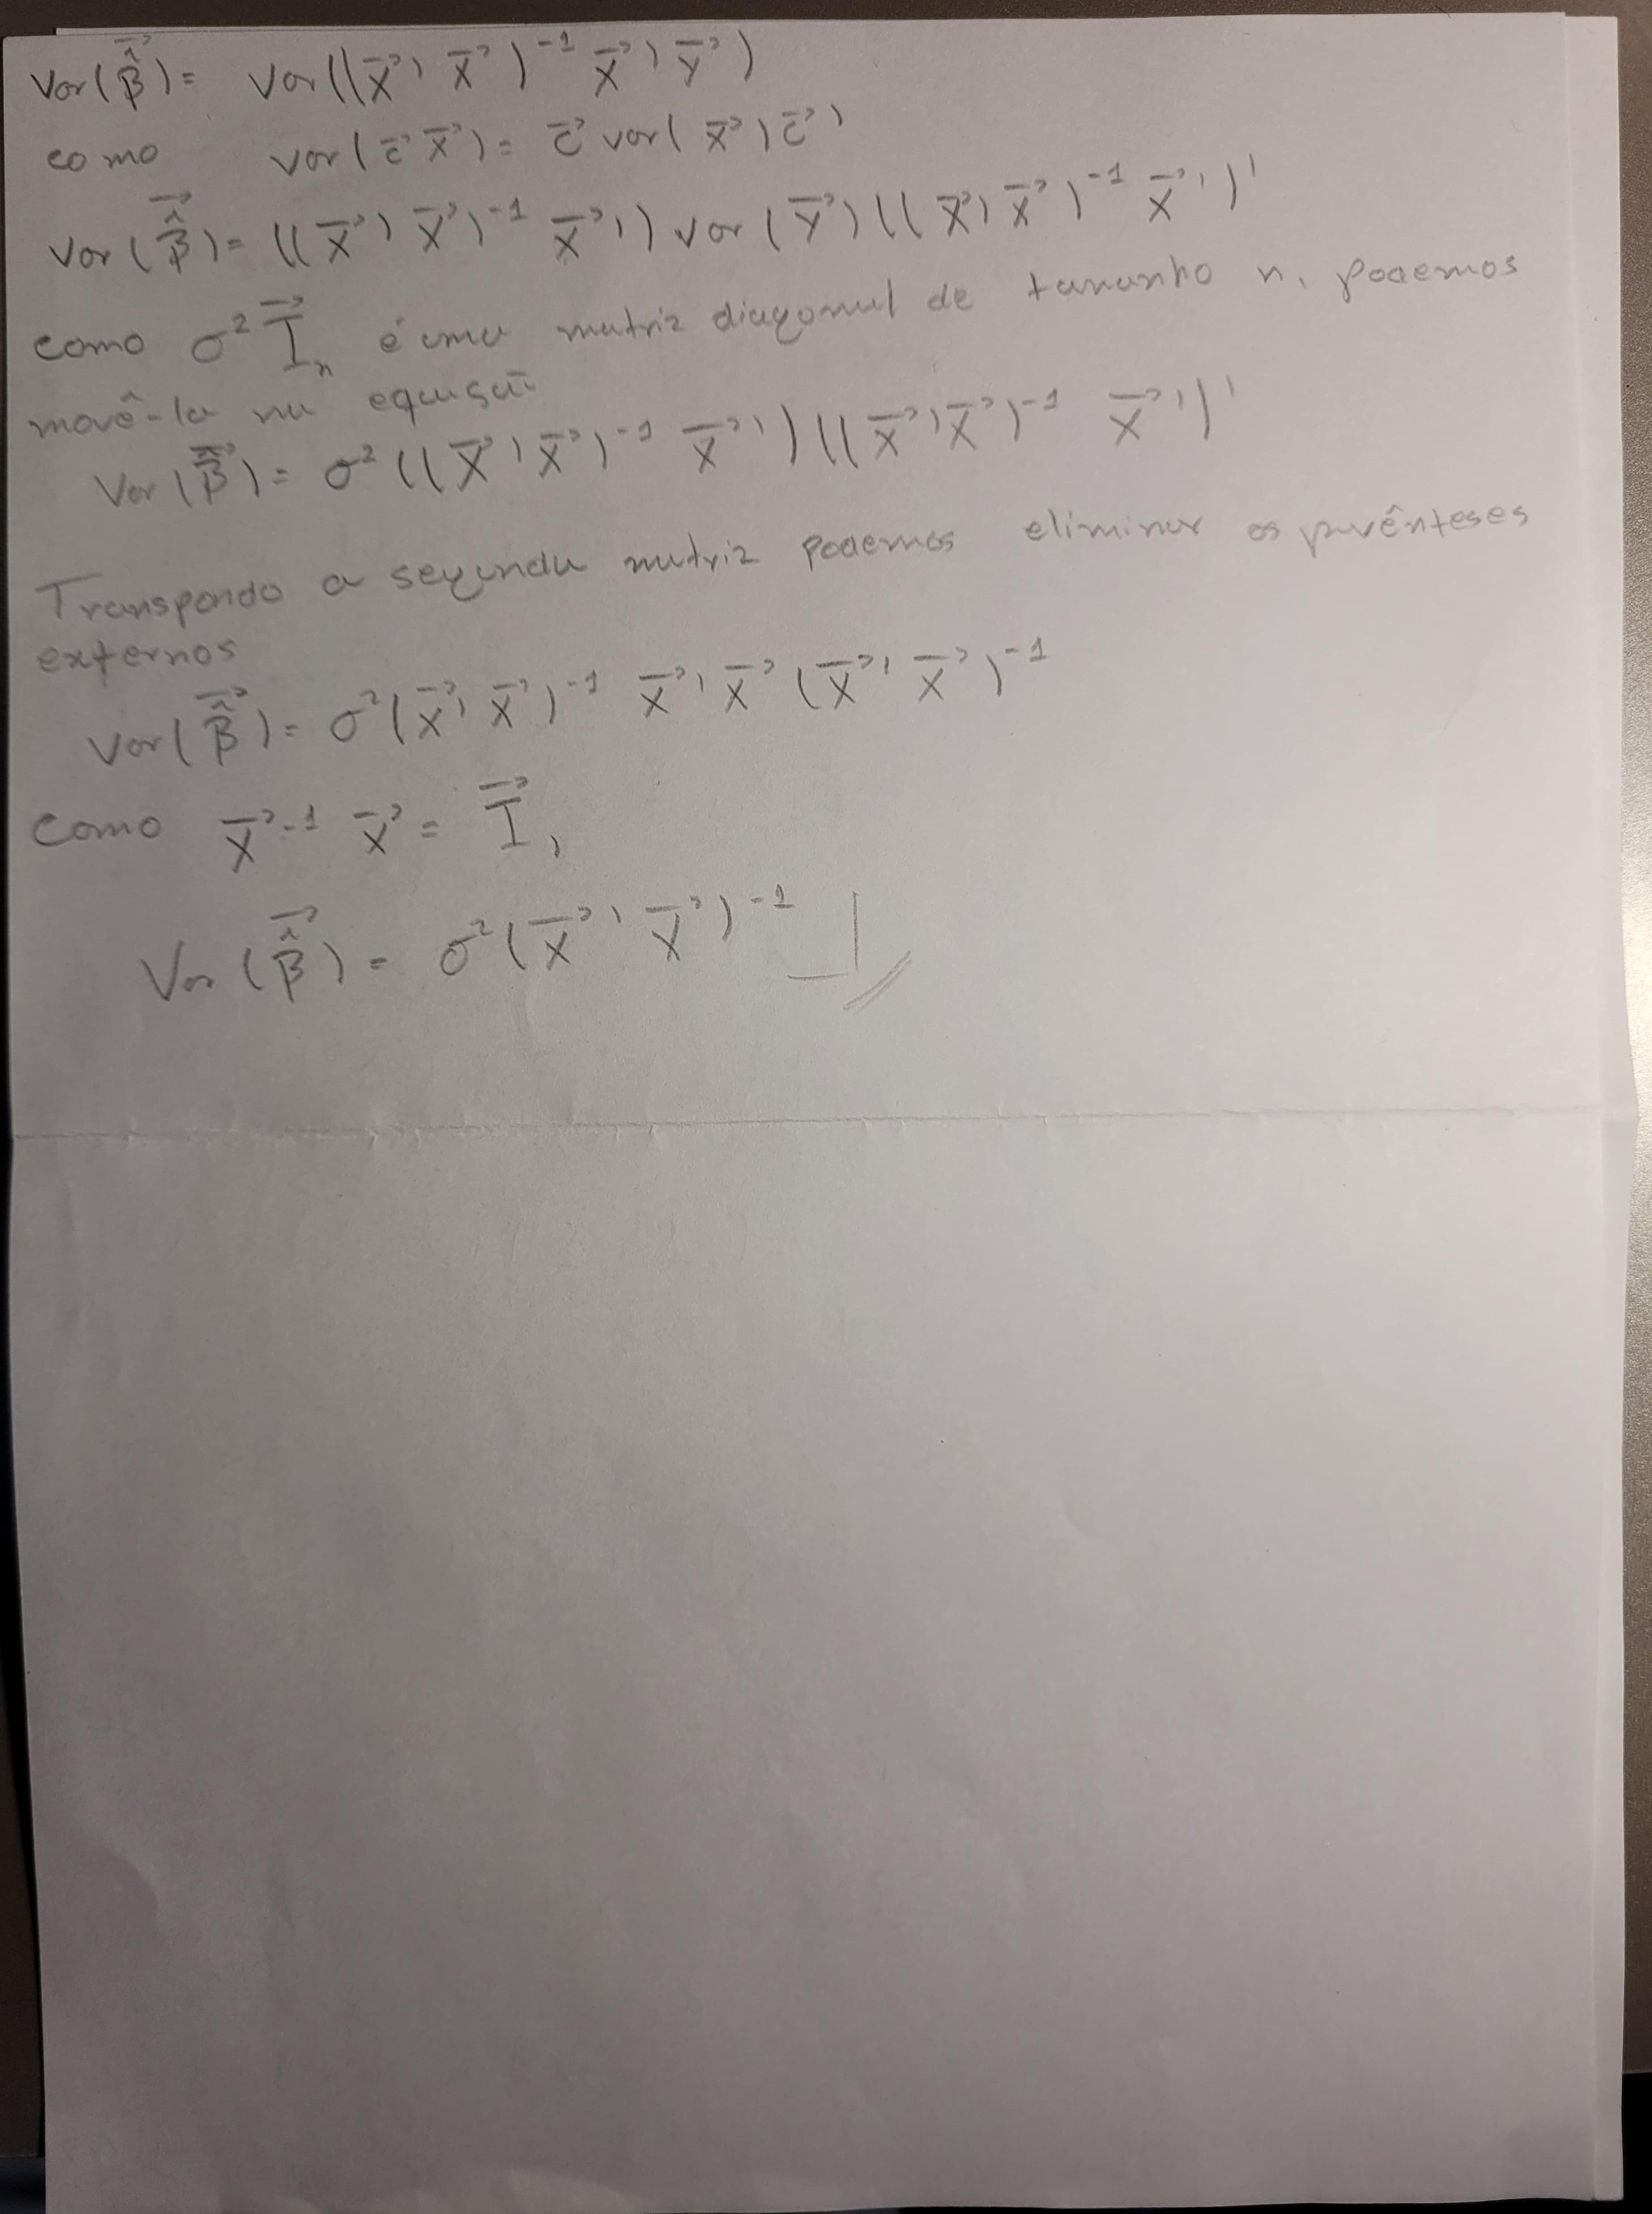 Var(β̂⃗) = Var((X⃗' X⃗)⁻¹ X⃗' Y⃗)
como var(c⃗ X⃗) = c⃗ var(X⃗) c⃗'
Var(β̂⃗) = ((X⃗' X⃗)⁻¹ X⃗') var(Y⃗) ((X⃗' X⃗)⁻¹ X⃗')'
como σ² I⃗ₙ é uma matriz diagonal de tamanho n, podemos
movê-la na equação
Var(β̂⃗) = σ² ((X⃗' X⃗)⁻¹ X⃗') ((X⃗' X⃗)⁻¹ X⃗')'
Transpondo a segunda matriz podemos eliminar os parênteses
externos
Var(β̂⃗) = σ² (X⃗' X⃗)⁻¹ X⃗' X⃗ (X⃗' X⃗)⁻¹
Como X⃗⁻¹ X⃗ = I⃗,
Var(β̂⃗) = σ² (X⃗' X⃗)⁻¹